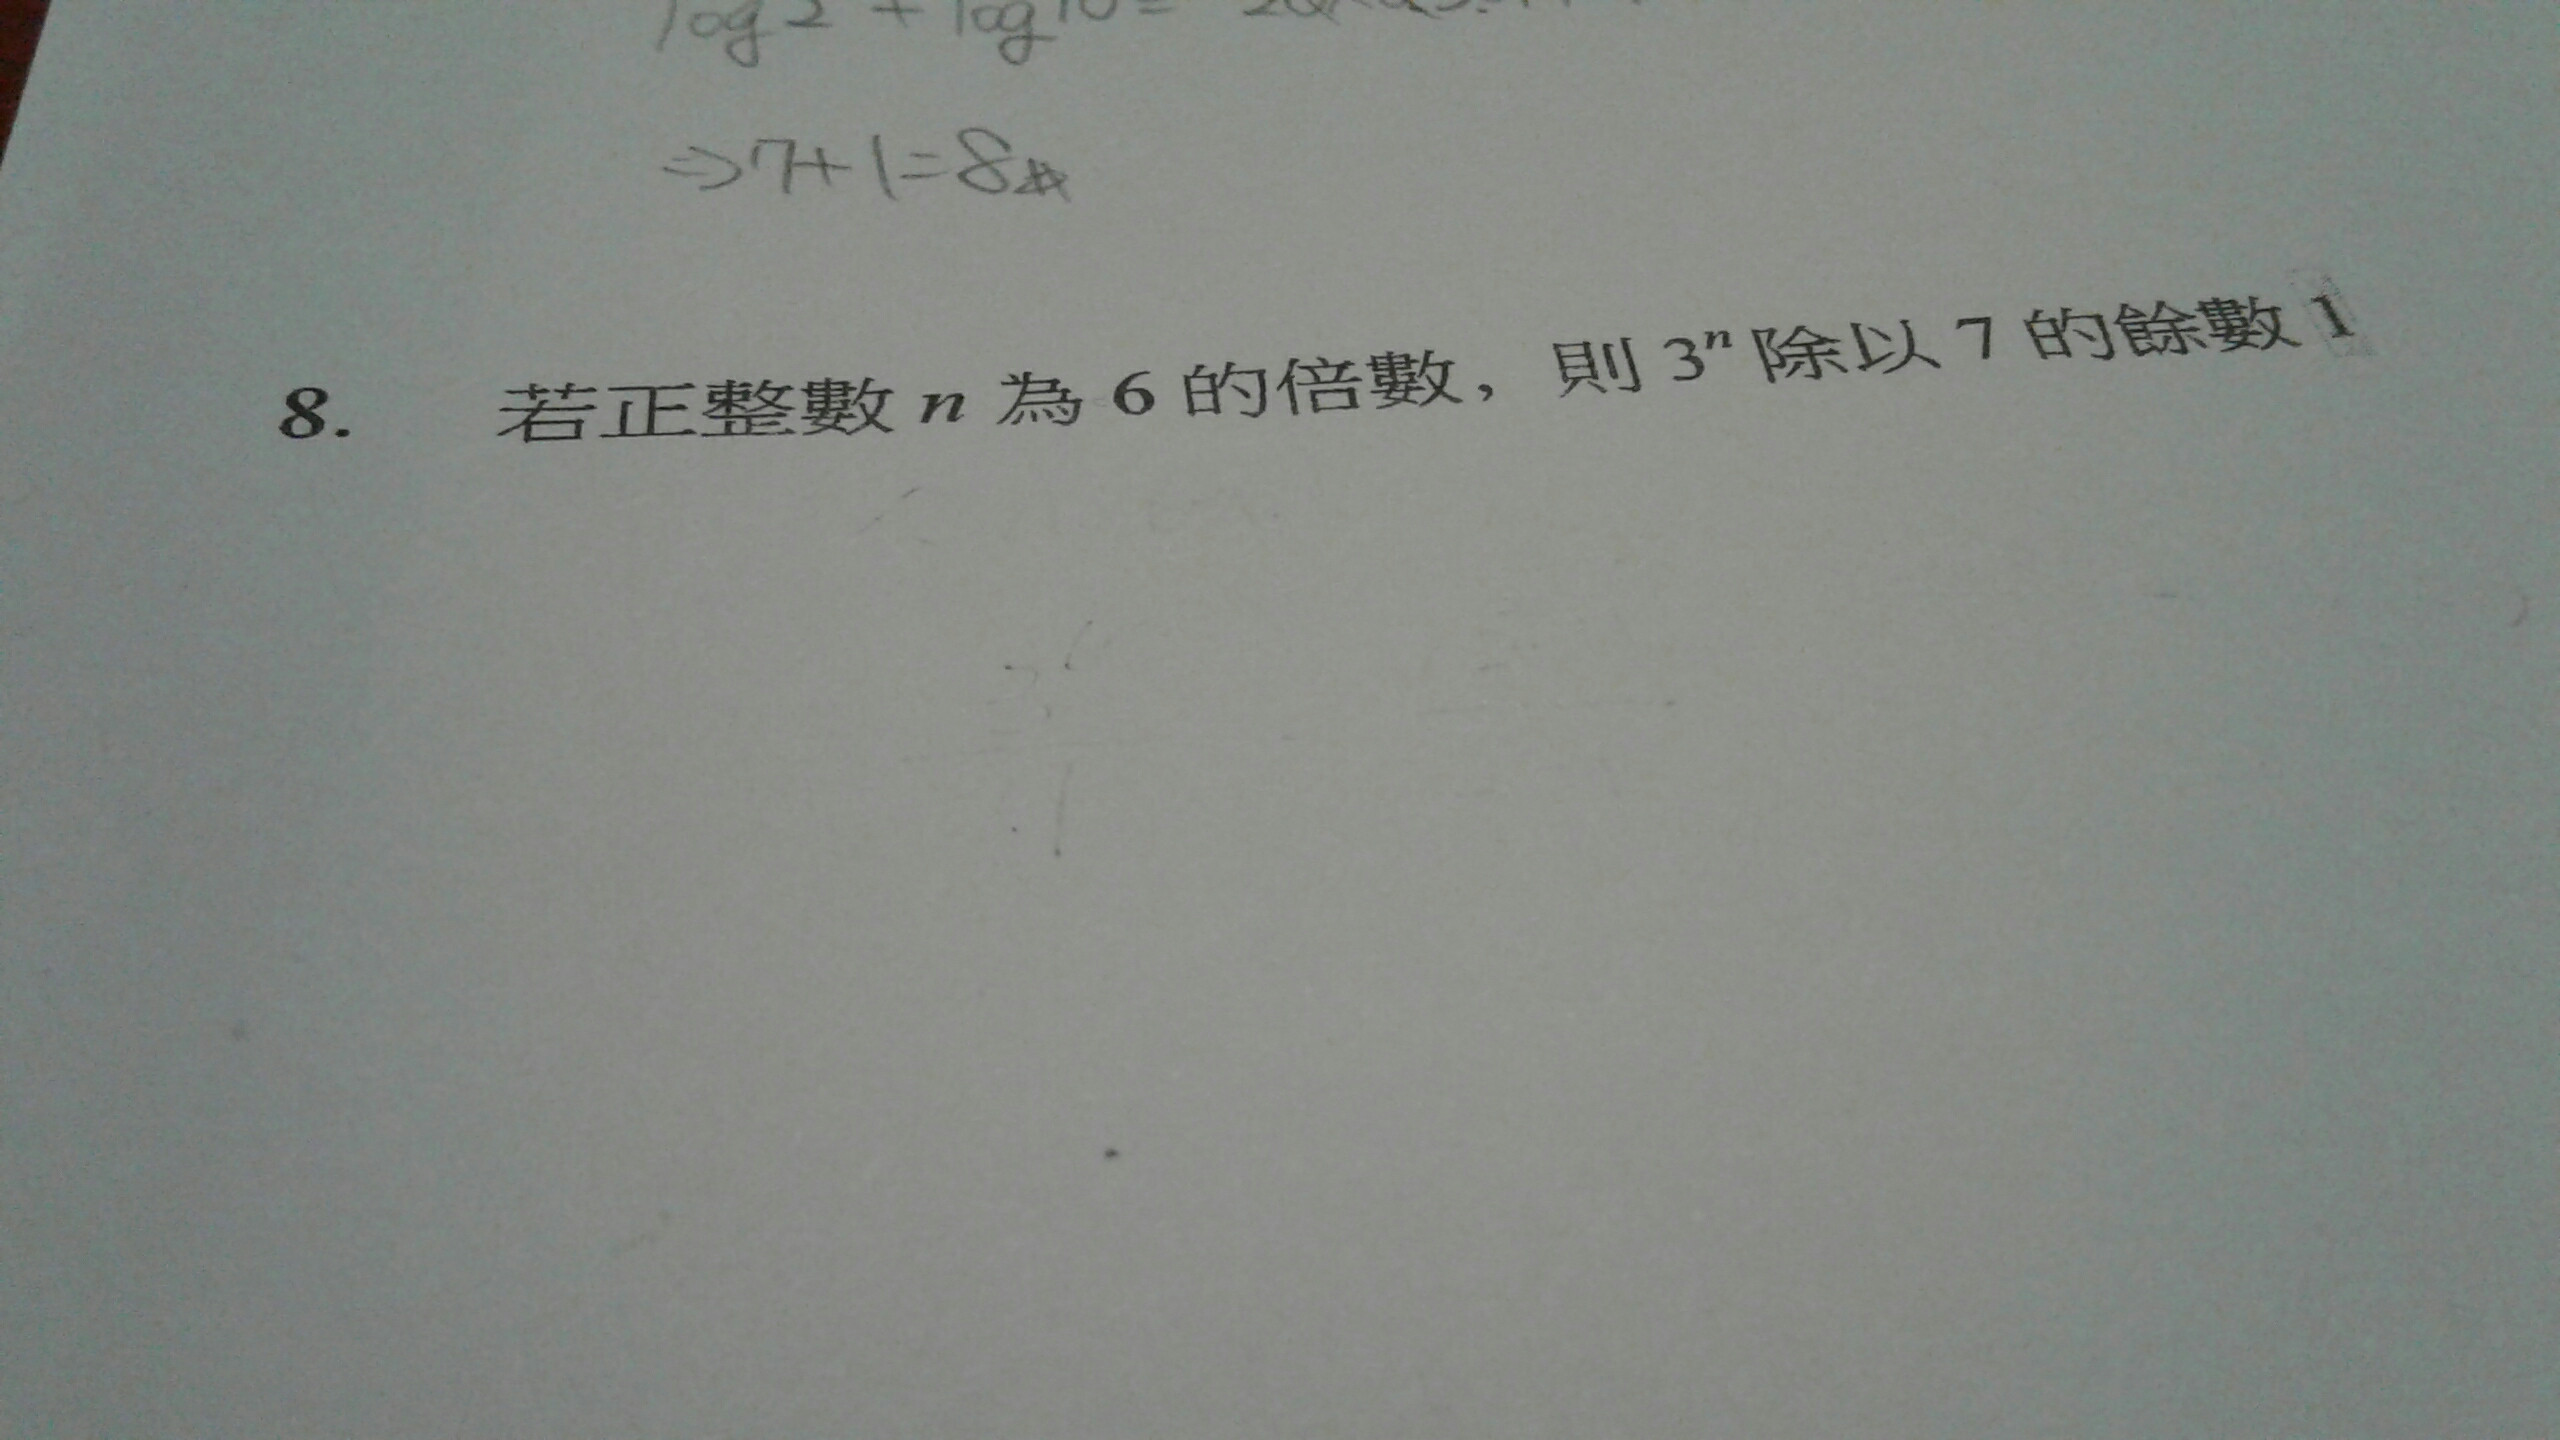 log2 + log10 =
⇒7+1=8#
8. 若正整數 n 為 6 的倍數，則 3ⁿ 除以 7 的餘數 1